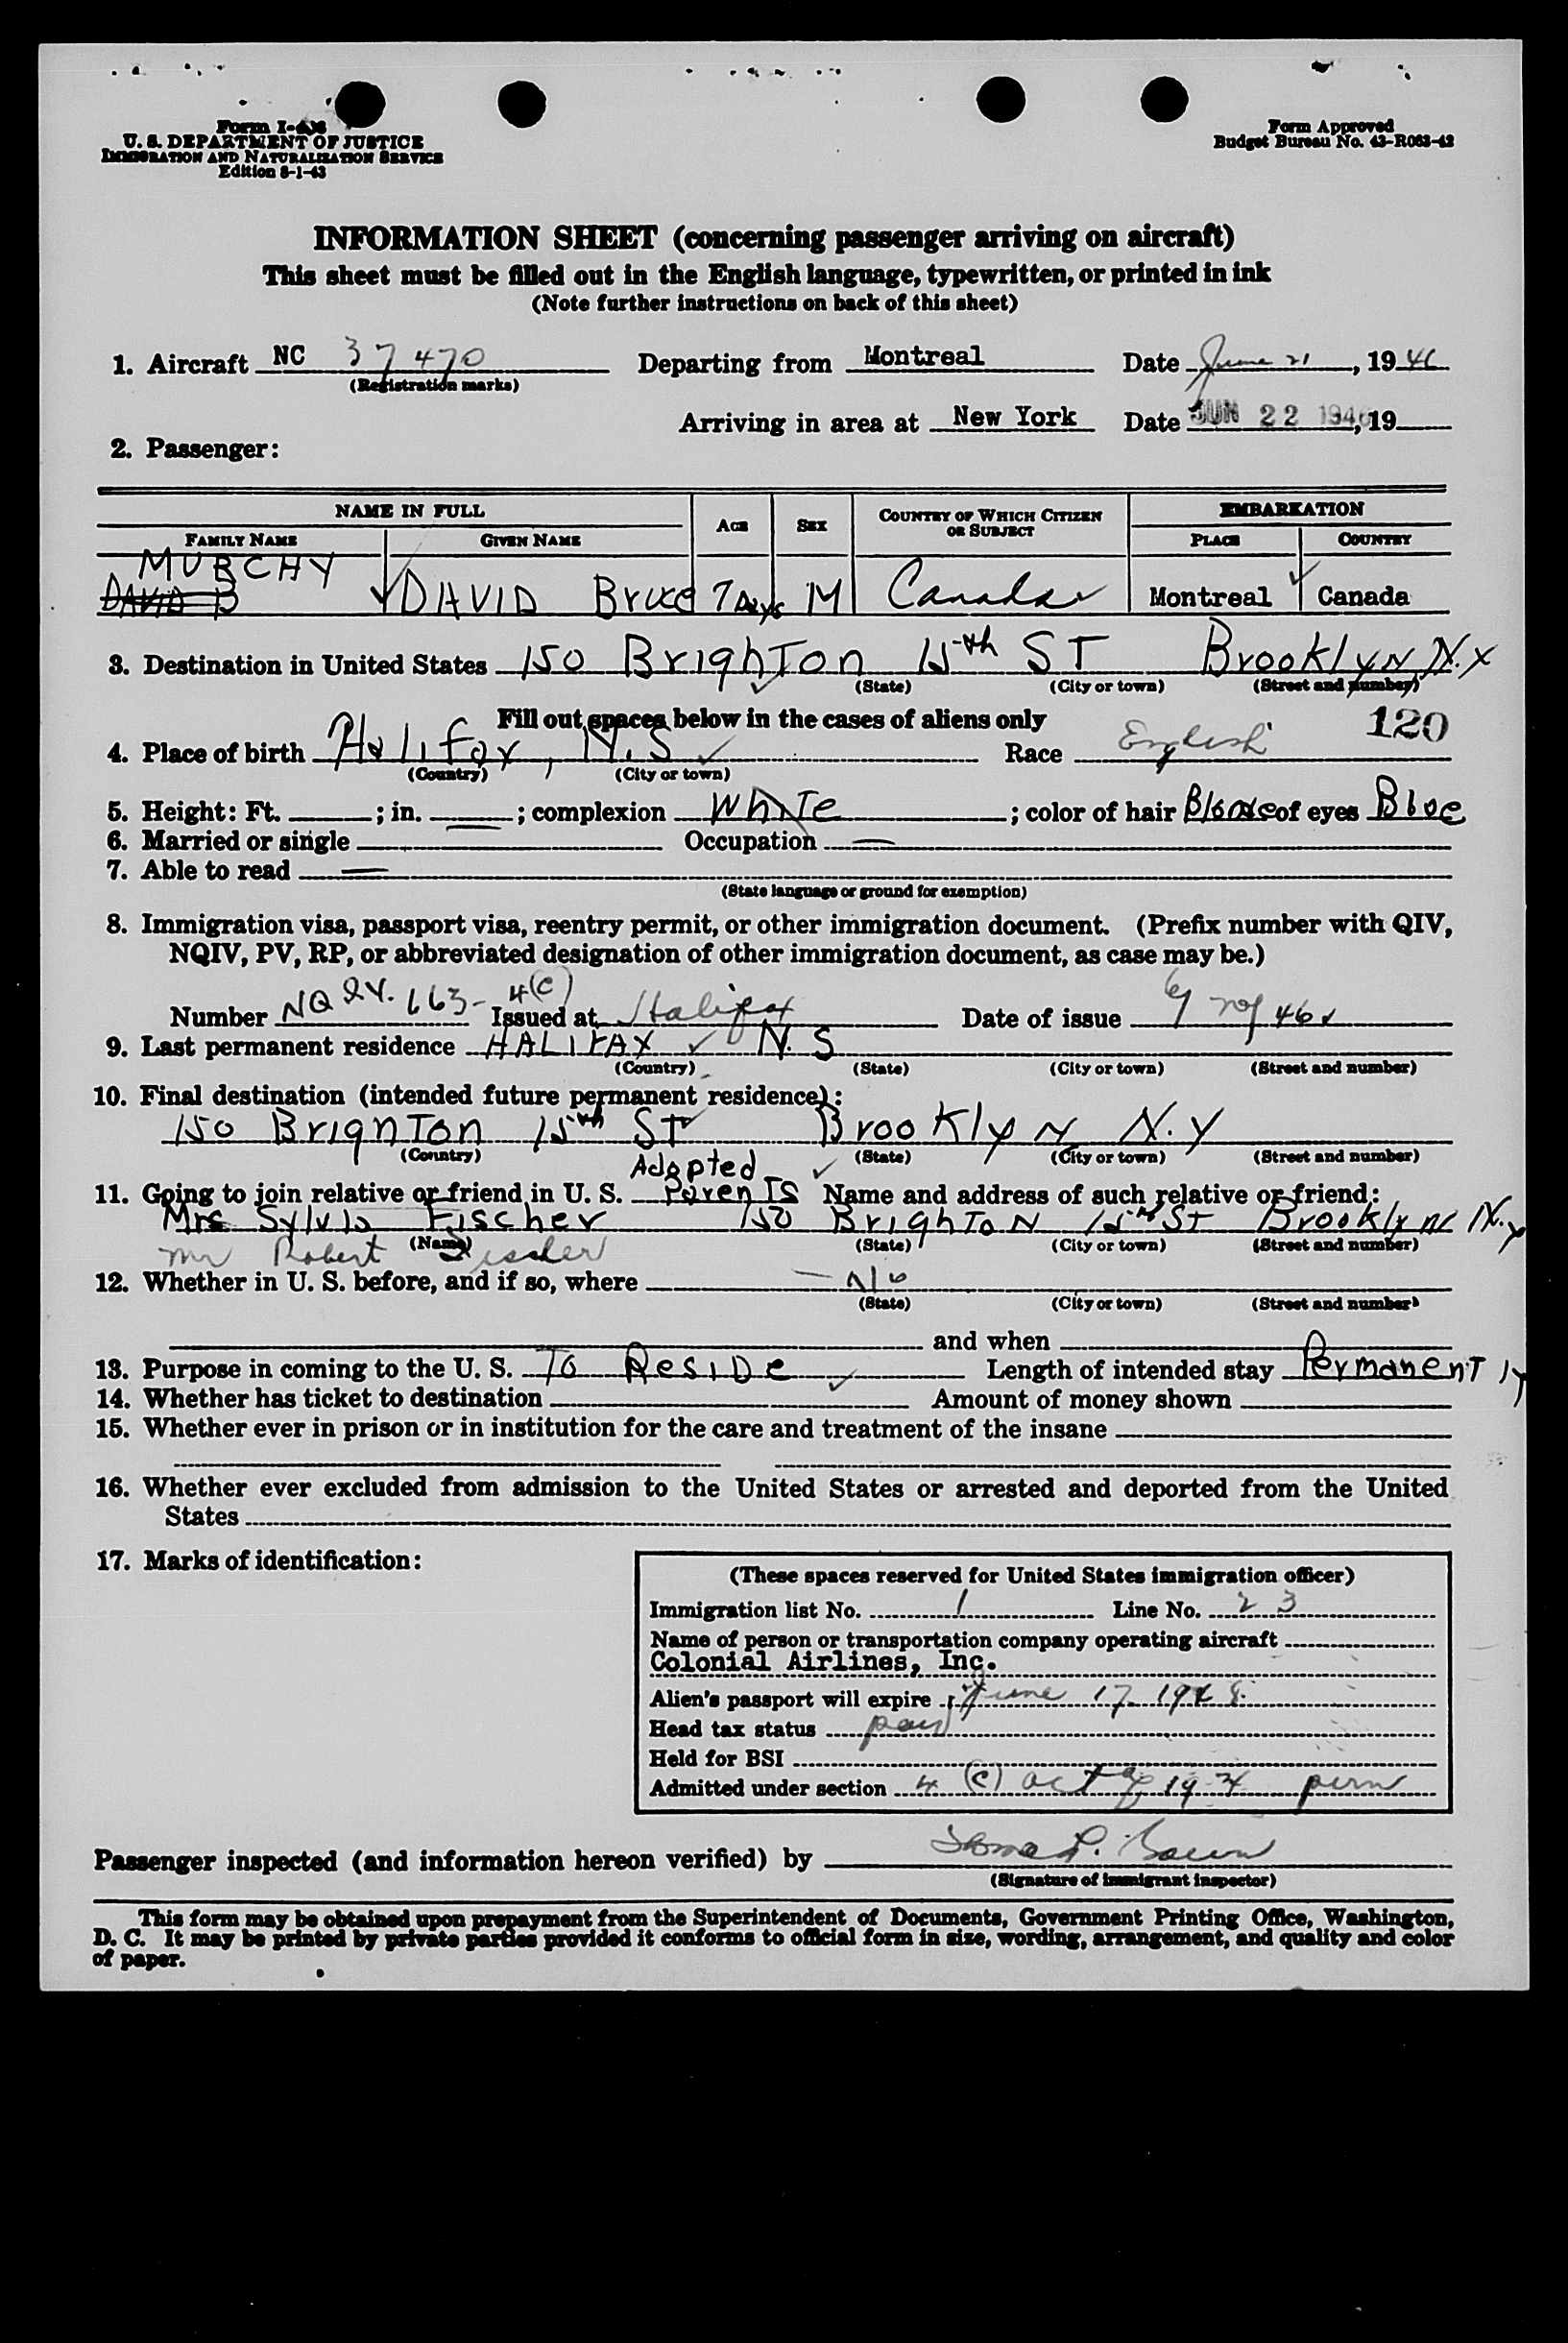 Form I-
U. S. DEPARTMENT OF JUSTICE
IMMIGRATION AND NATURALIZATION SERVICE
Edition 8-1-43
Form Approved
Budget Bureau No. 43-R063-42
INFORMATION SHEET (concerning passenger arriving on aircraft)
This sheet must be filled out in the English language, typewritten, or printed in ink
(Note further instructions on back of this sheet)
1. Aircraft NC 37470 Departing from Montreal Date June 21, 1946
(Registration marks)
Arriving in area at New York Date JUN 22 1946, 19
2. Passenger:
NAME IN FULL AGE SEX COUNTRY OF WHICH CITIZEN OR SUBJECT EMBARKATION
FAMILY NAME GIVEN NAME PLACE COUNTRY
MURCHY
DAVID B DAVID Bruce 7 Days M Canada Montreal Canada
3. Destination in United States 150 BrighTon 15th ST Brooklyn N.Y
(State) (City or town) (Street and number)
Fill out spaces below in the cases of aliens only 120
4. Place of birth Halifax, N.S Race English
(Country) (City or town)
5. Height: Ft. ; in. ; complexion WhiTe ; color of hair Blonde of eyes Blue
6. Married or single Occupation —
7. Able to read —
(State language or ground for exemption)
8. Immigration visa, passport visa, reentry permit, or other immigration document. (Prefix number with QIV,
NQIV, PV, RP, or abbreviated designation of other immigration document, as case may be.)
Number NQIV. 663- 4(c) Issued at Halifax Date of issue 46
9. Last permanent residence HALIFAX N. S
(Country) (State) (City or town) (Street and number)
10. Final destination (intended future permanent residence):
150 BrighTon 15th ST Brooklyn N.Y
(Country) (State) (City or town) (Street and number)
Adopted
11. Going to join relative or friend in U. S. ParenTS Name and address of such relative or friend:
Mrs Sylvia Fischer 150 BrighToN 15th ST Brooklyn N.Y
(Name) (State) (City or town) (Street and number)
Mr Robert
12. Whether in U. S. before, and if so, where — No
(State) (City or town) (Street and number)
and when
13. Purpose in coming to the U. S. To ResiDe Length of intended stay PermanenTly
14. Whether has ticket to destination Amount of money shown
15. Whether ever in prison or in institution for the care and treatment of the insane
16. Whether ever excluded from admission to the United States or arrested and deported from the United
States
17. Marks of identification:
(These spaces reserved for United States immigration officer)
Immigration list No. 1 Line No. 23
Name of person or transportation company operating aircraft
Colonial Airlines, Inc.
Alien's passport will expire June 17 1948
Head tax status paid
Held for BSI
Admitted under section 4 (c) act of 1924 perm
Passenger inspected (and information hereon verified) by
(Signature of immigrant inspector)
This form may be obtained upon prepayment from the Superintendent of Documents, Government Printing Office, Washington,
D. C. It may be printed by private parties provided it conforms to official form in size, wording, arrangement, and quality and color
of paper.